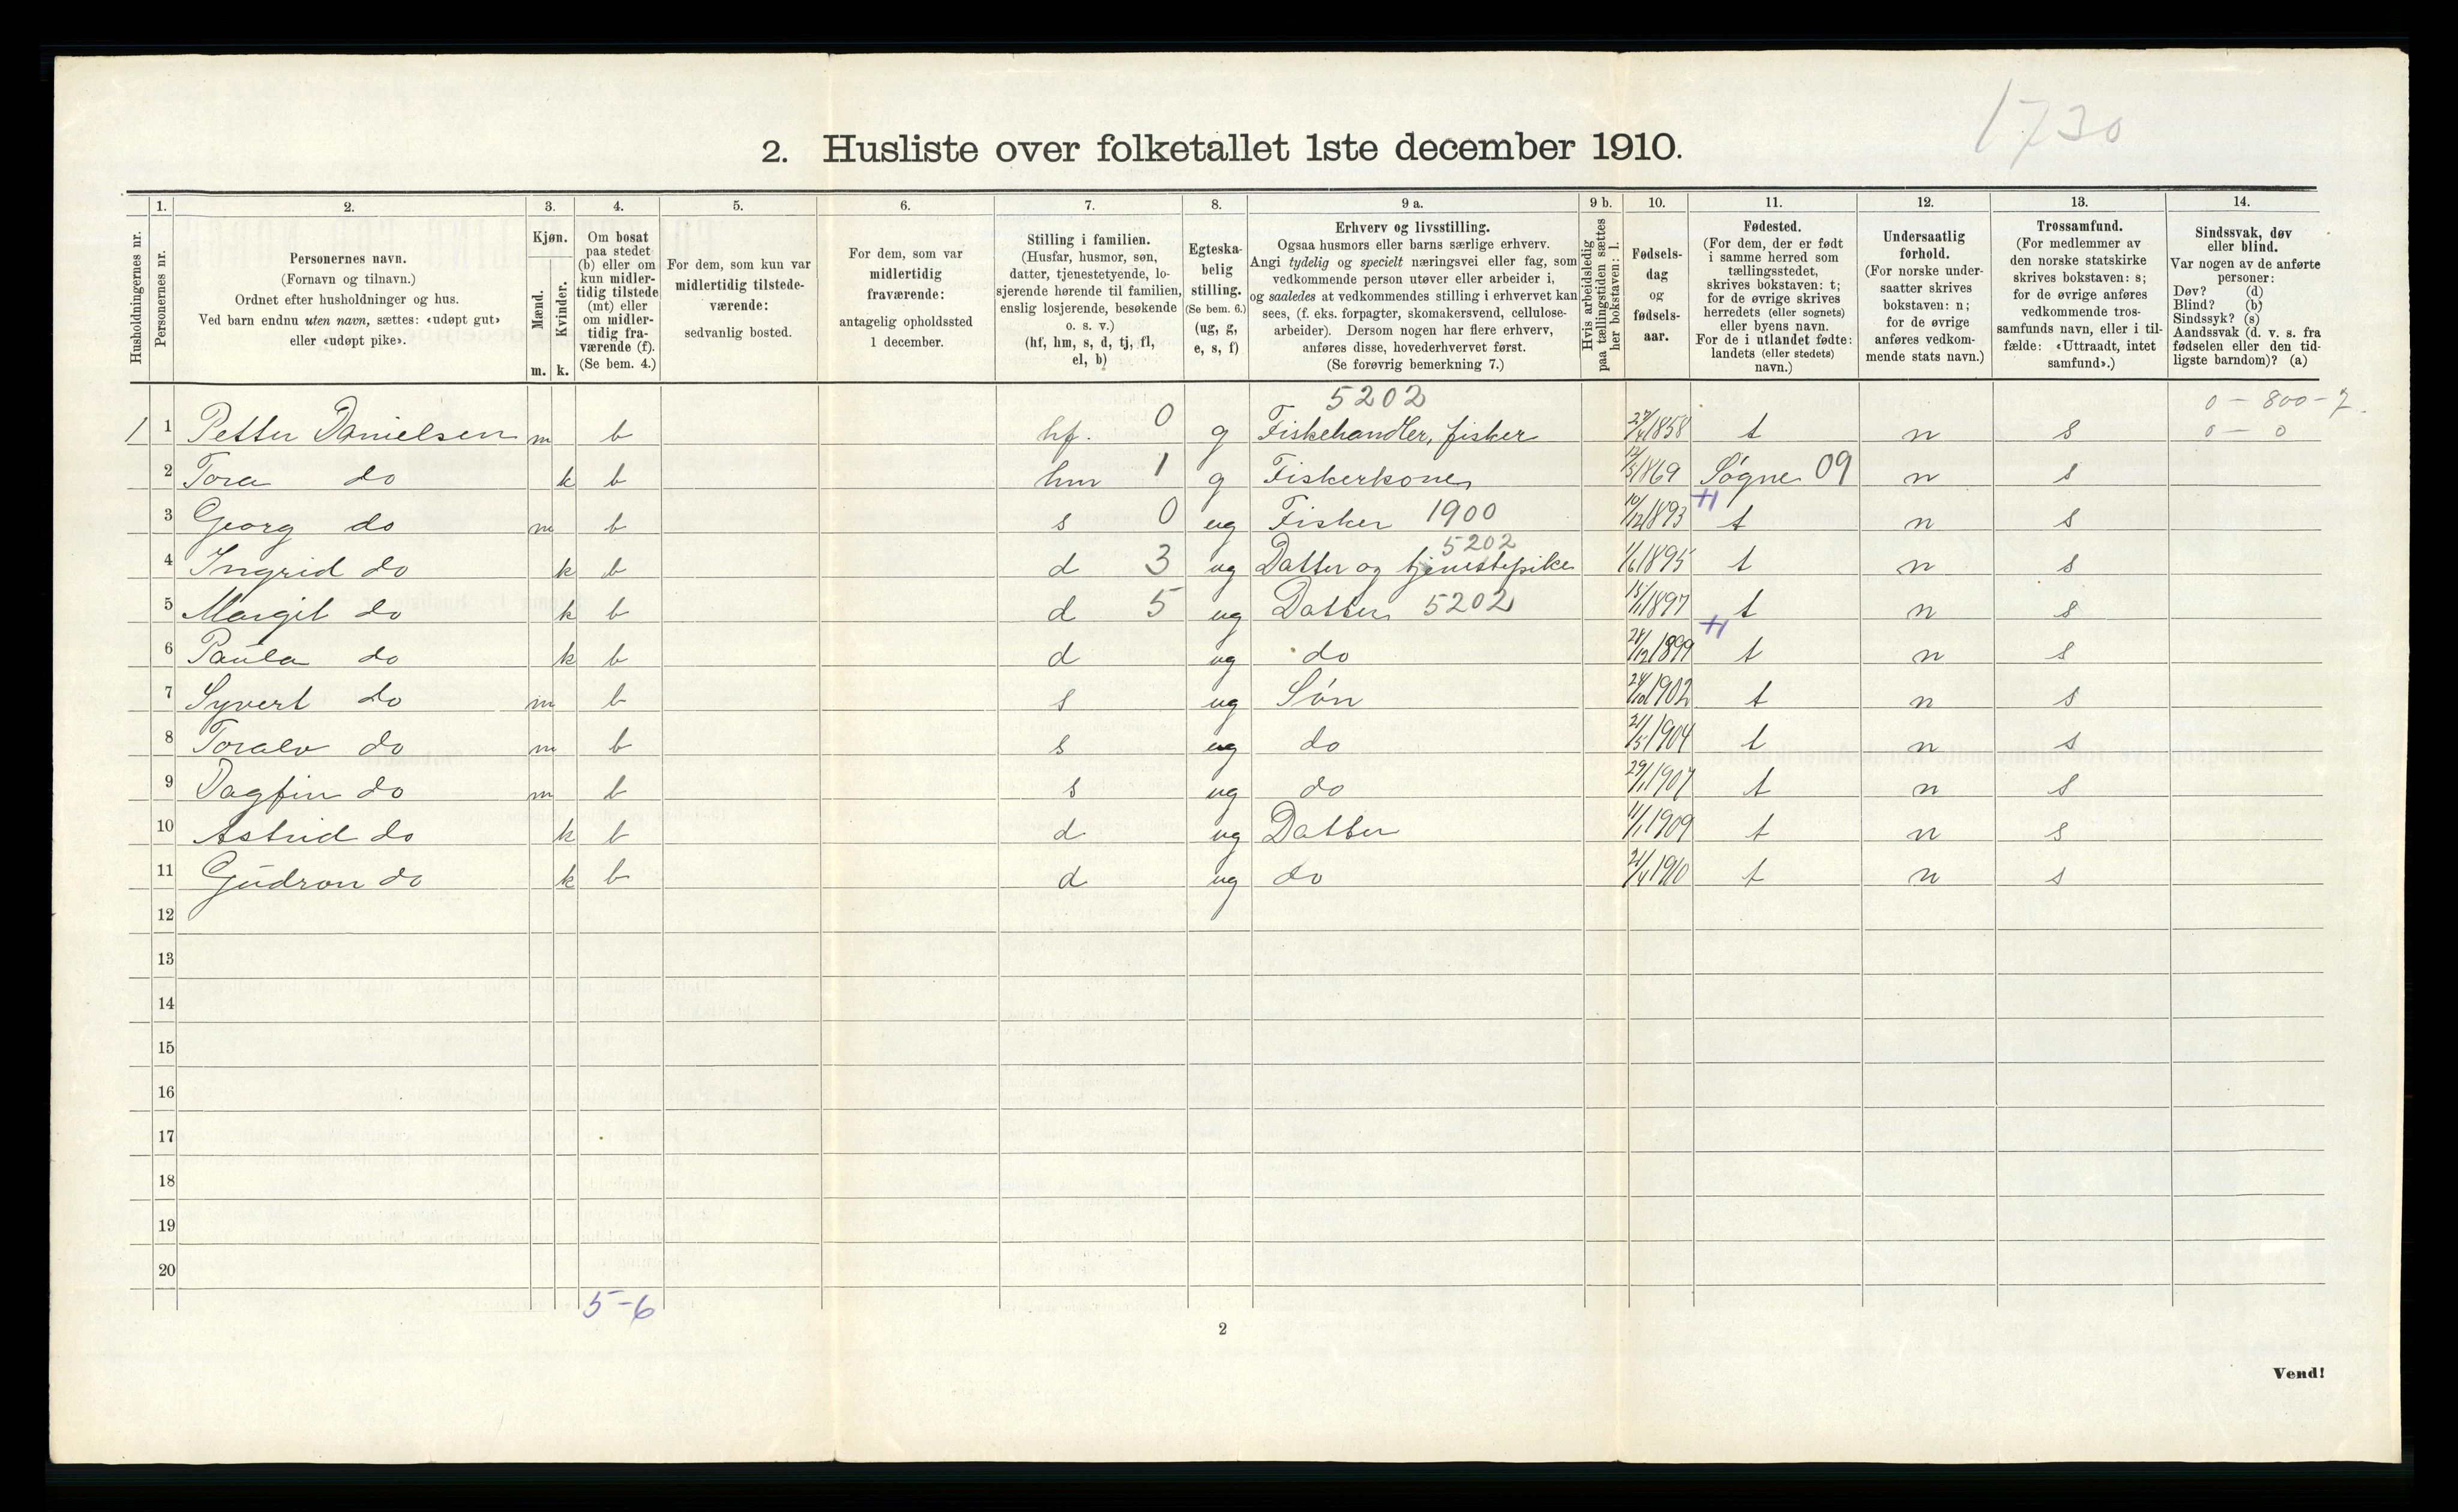 1730
2. Husliste over folketallet 1ste december 1910.
1. 2. 3. 4. 5. 6. 7. 8. 9 a. 9 b. 10. 11. 12. 13. 14.
Husholdningernes nr.
Personernes nr.
Personernes navn.
(Fornavn og tilnavn.)
Ordnet efter husholdninger og hus.
Ved barn endnu uten navn, sættes: «udøpt gut»
eller «udøpt pike».
Kjøn.
Mænd.
Kvinder.
m. k.
Om bosat
paa stedet
(b) eller om
kun midler-
tidig tilstede
(mt) eller
om midler-
tidig fra-
værende (f).
(Se bem. 4.)
For dem, som kun var
midlertidig tilstede-
værende:
sedvanlig bosted.
For dem, som var
midlertidig
fraværende:
antagelig opholdssted
1 december.
Stilling i familien.
(Husfar, husmor, søn,
datter, tjenestetyende, lo-
sjerende hørende til familien,
enslig losjerende, besøkende
o. s. v.)
(hf, hm, s, d, tj, fl,
el, b)
Egteska-
belig
stilling.
(Se bem. 6.)
(ug, g,
e, s, f)
Erhverv og livsstilling.
Ogsaa husmors eller barns særlige erhverv.
Angi tydelig og specielt næringsvei eller fag, som
vedkommende person utøver eller arbeider i,
og saaledes at vedkommendes stilling i erhvervet kan
sees, (f. eks. forpagter, skomakersvend, cellulose-
arbeider). Dersom nogen har flere erhverv,
anføres disse, hovederhvervet først.
(Se forøvrig bemerkning 7.)
Hvis arbeidsledig
paa tællingstiden sættes
her bokstaven: l.
Fødsels-
dag
og
fødsels-
aar.
Fødested.
(For dem, der er født
i samme herred som
tællingsstedet,
skrives bokstaven: t;
for de øvrige skrives
herredets (eller sognets)
eller byens navn.
For de i utlandet fødte:
landets (eller stedets)
navn.)
Undersaatlig
forhold.
(For norske under-
saatter skrives
bokstaven: n;
for de øvrige
anføres vedkom-
mende stats navn.)
Trossamfund.
(For medlemmer av
den norske statskirke
skrives bokstaven: s;
for de øvrige anføres
vedkommende tros-
samfunds navn, eller i til-
fælde: «Uttraadt, intet
samfund».)
Sindssvak, døv
eller blind.
Var nogen av de anførte
personer:
Døv? (d)
Blind? (b)
Sindssyk? (s)
Aandssvak (d. v. s. fra
fødselen eller den tid-
ligste barndom)? (a)
5202 0 - 800 - 2.
1 1 Petter Danielsen m b hf. 0 g Fiskehandler, fisker 27/4 1858 t n s 0 - 0
2 Tora do k b hm 1 g Fiskerkone 12/5 1869 Søgne 09 n s
3 Georg do m b s 0 ug Fisker 1900 10/12 1893 t n s
5202
4 Ingrid do k b d 3 ug Datter og tjenestepike 1/6 1895 t n s
5 Margit do k b d 5 ug Datter 5202 15/1 1897 t n s
6 Paula do k b d ug do 28/12 1899 t n s
7 Syvert do m b s ug Søn 24/10 1902 t n s
8 Toralv do m b s ug do 21/5 1904 t n s
9 Dagfin do m b s ug do 29/1 1907 t n s
10 Astrid do k b d ug Datter 11/1 1909 t n s
11 Gudron do k b d ug do 21/4 1910 t n s
12
13
14
15
16
17
18
19
20
5-6
2
Vend!